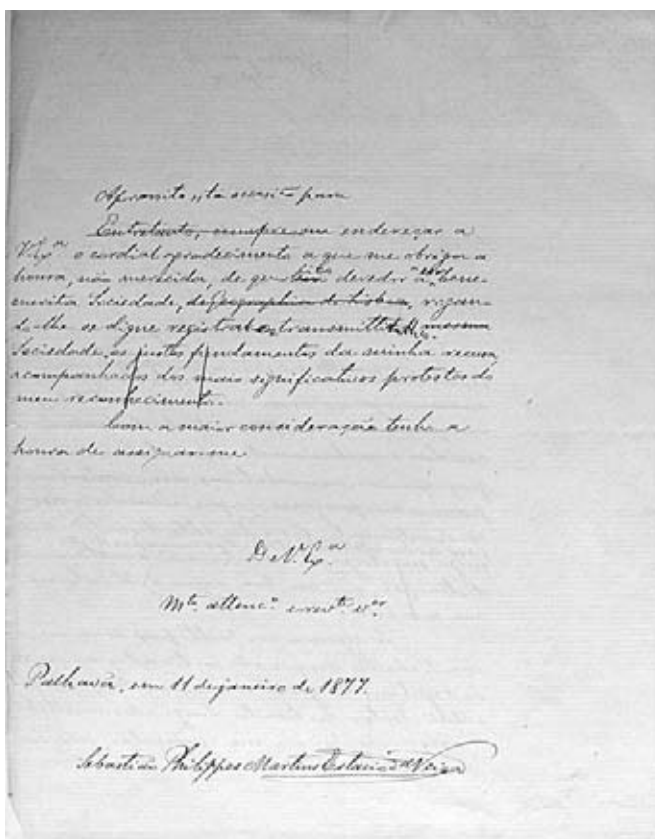 Aproveito esta occasião para
Entretanto, cumpre-me endereçar a
V. Ex.ª o cordial agradecimento a que me obriga a
honra, não merecida, de ser devedor a bene-
merita Sociedade, de Geographia de Lisboa, rogan-
do-lhe se digne registrar e transmittir á mesma
Sociedade, os justos fundamentos da minha recusa,
acompanhados dos mais significativos protestos do
meu reconhecimento.
Com a maior consideração tenho a
honra de assignar-me
De V. Ex.ª
M.to attenc.º e rev.te
Palhavã, em 11 de janeiro de 1877.
Sebastião Philippes Martins Estacio da Veiga